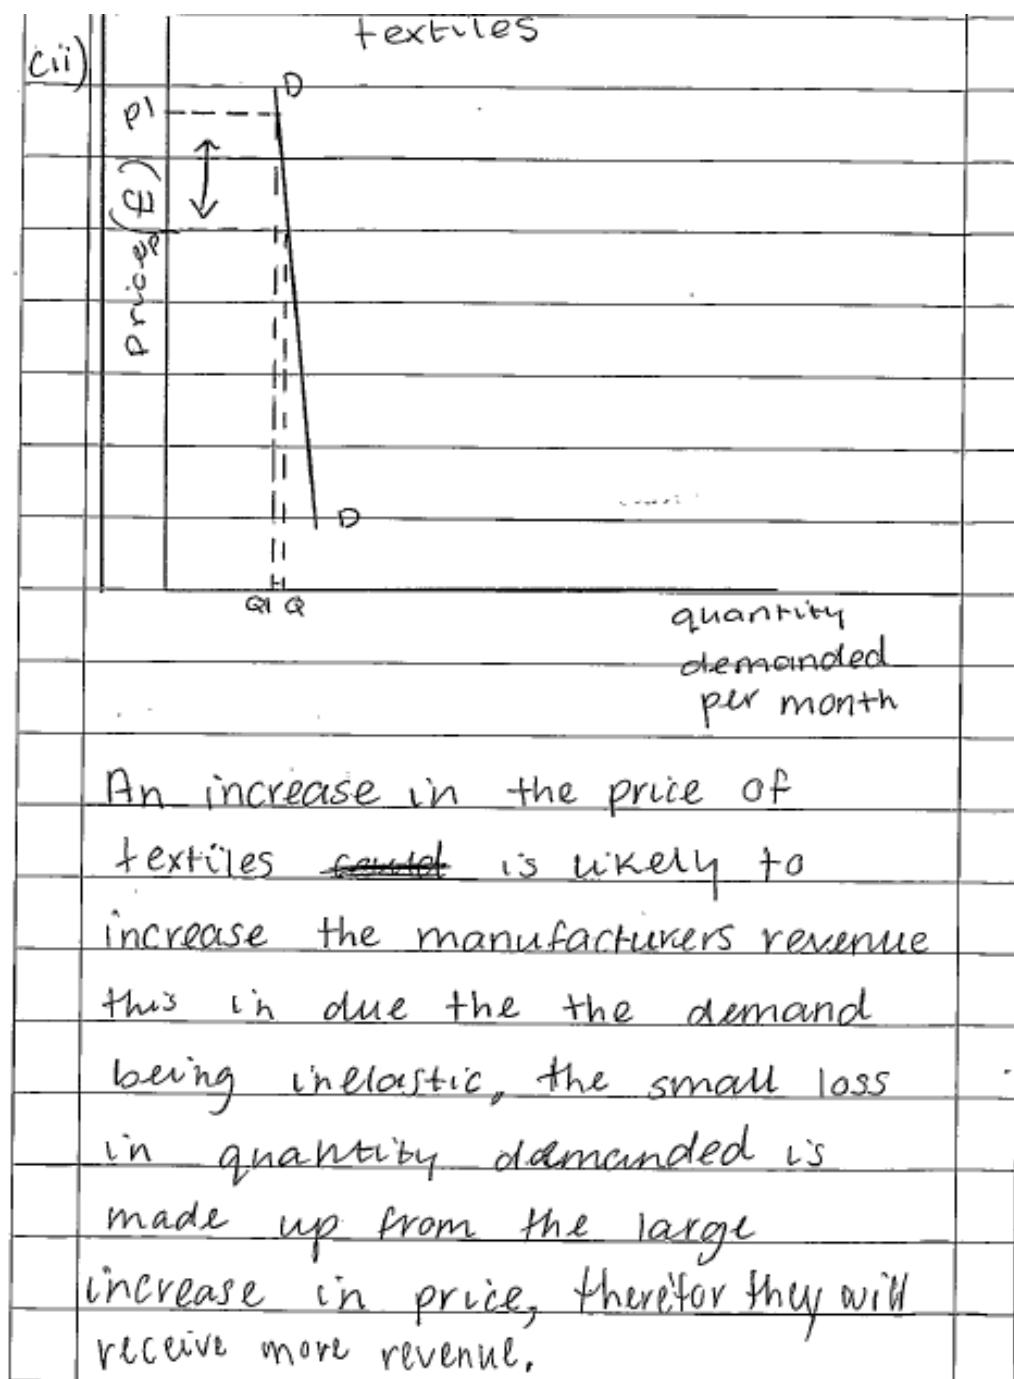 textiles
cii)
D
P1
Price (£)
P
D
Q1 Q
quantity
demanded
per month
An increase in the price of
textiles could is likely to
increase the manufacturers revenue
this in due the the demand
being inelastic, the small loss
in quantity demanded is
made up from the large
increase in price, therefor they will
receive more revenue.